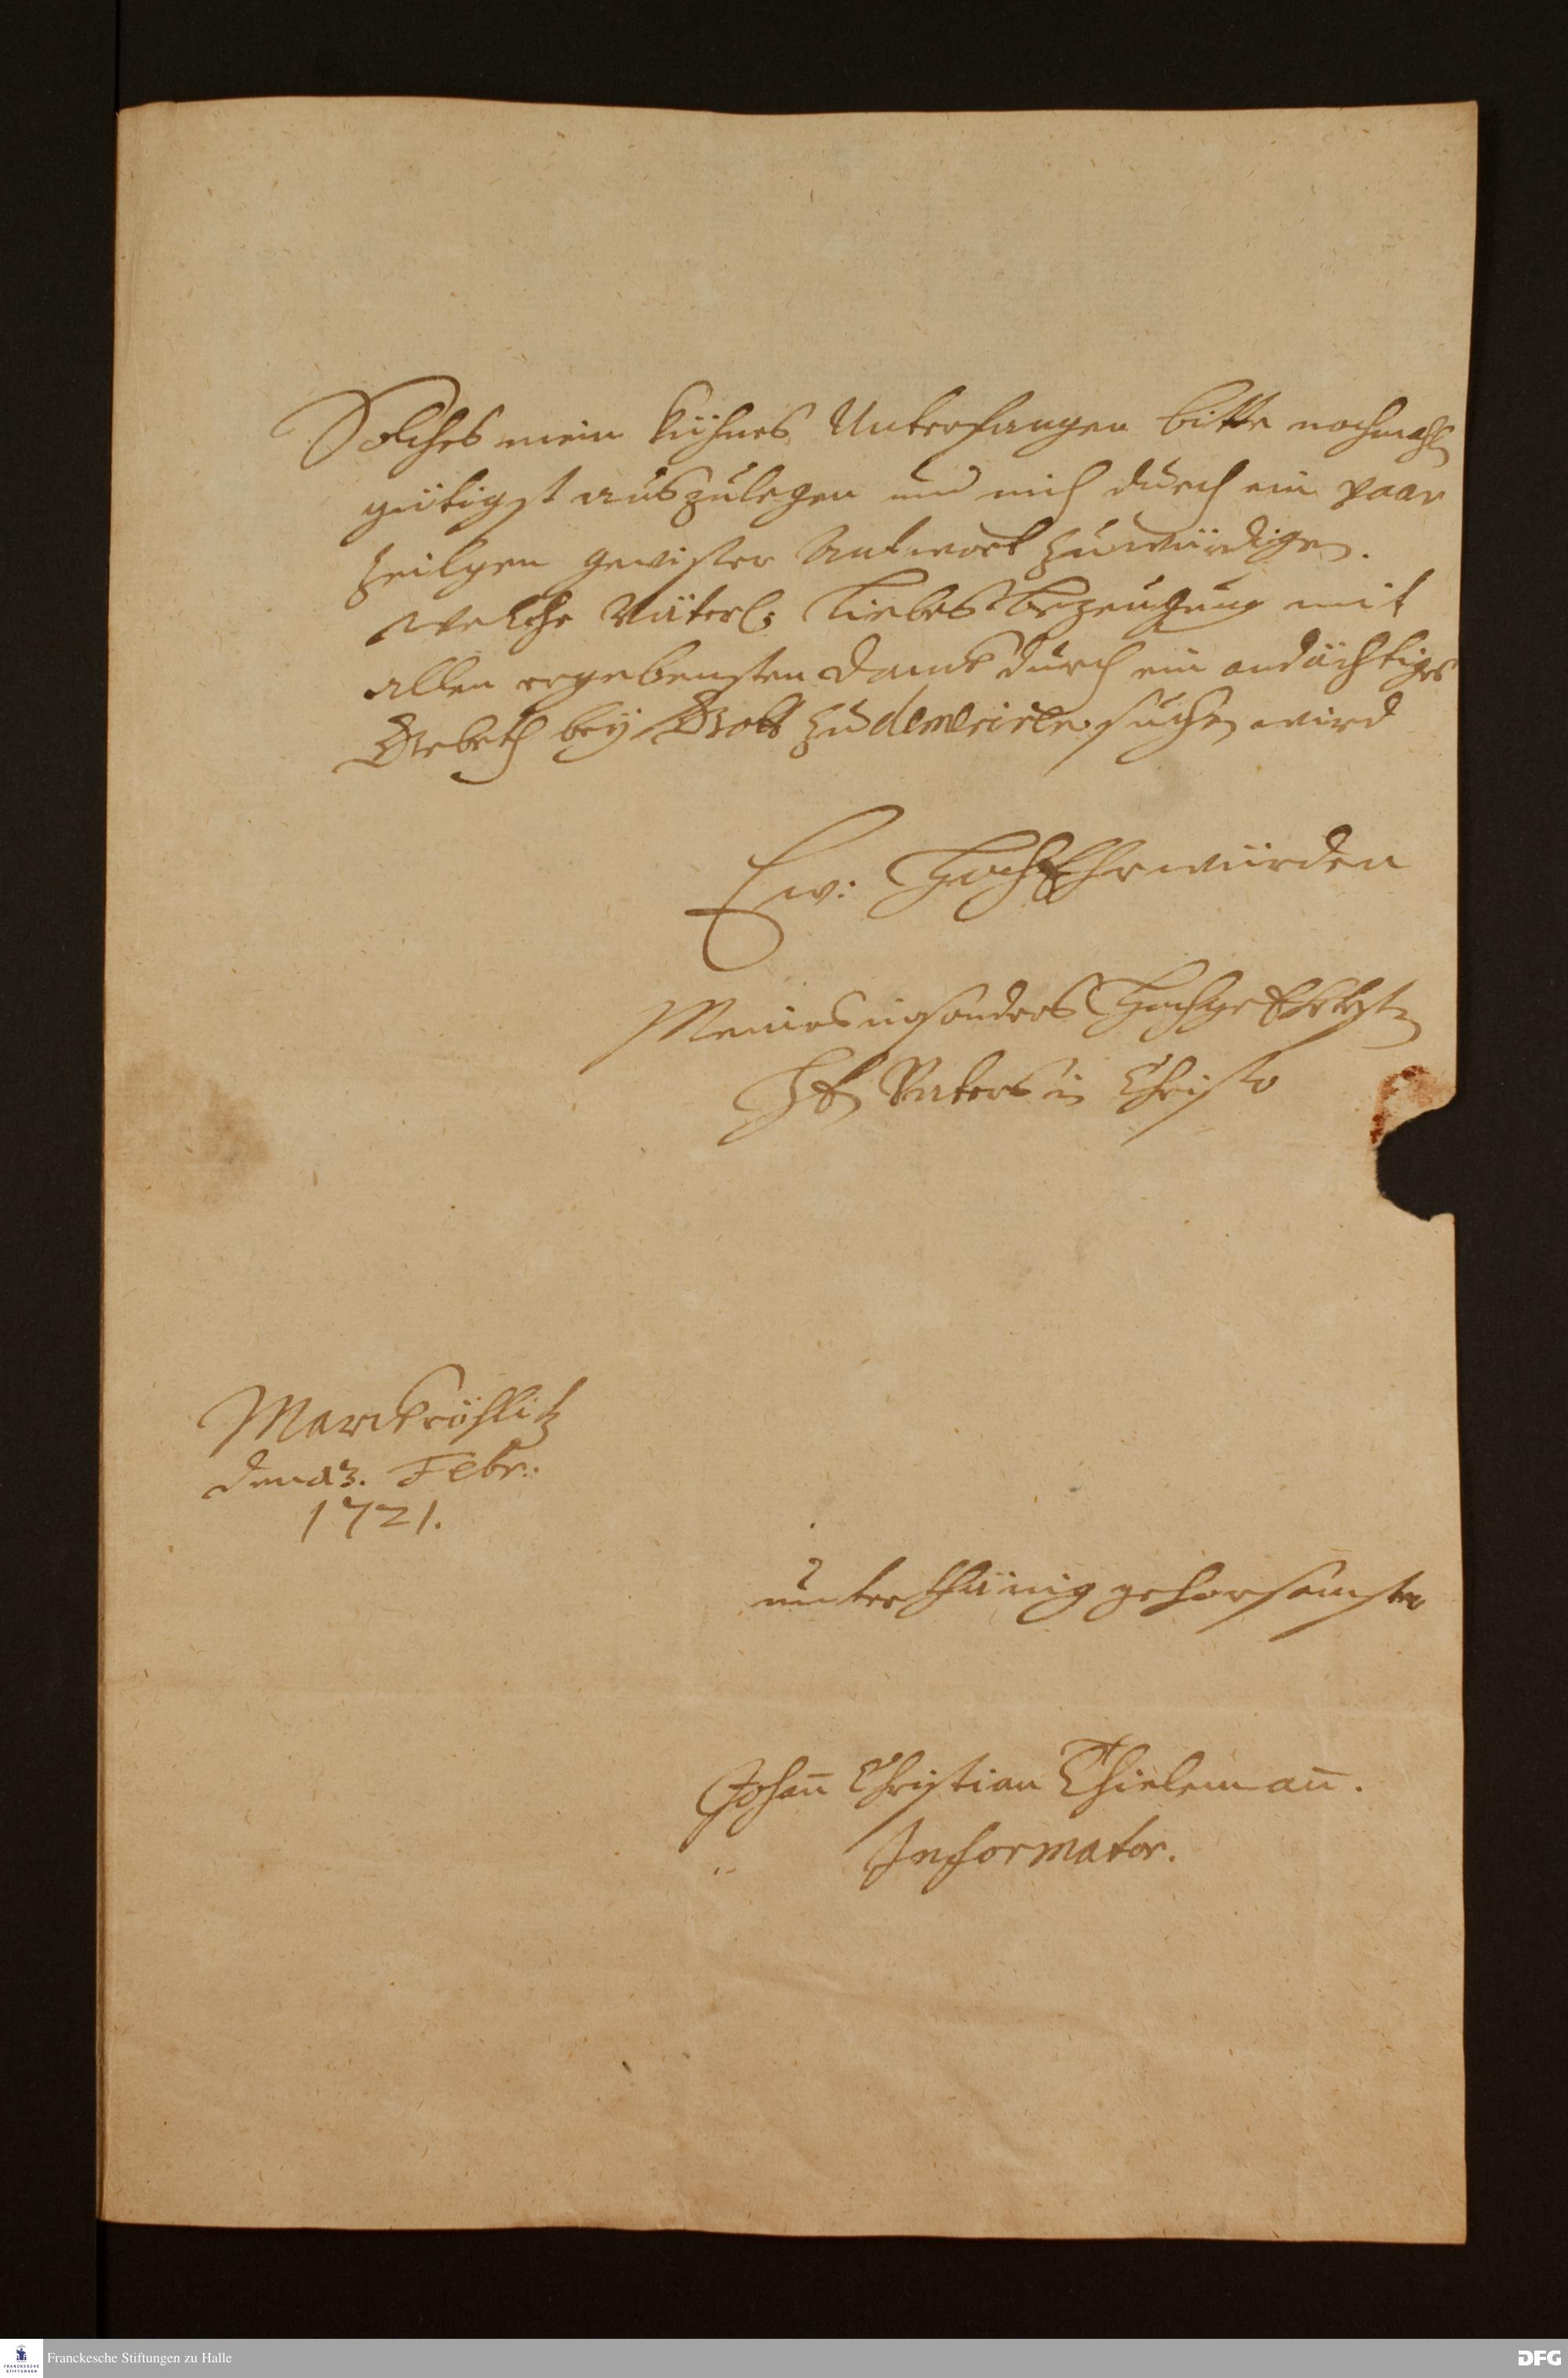 Solches mein kühnes Unterfangen bitte nochmahls
gütigst auszulegen und mich durch ein paar
Zeilgen gewisser Antwort zu würdigen.
welche Väterl: Liebes Bezeugung mit
allen ergebensten Danck durch ein andächtiges
Gebeth bey Gott zu demeriren suchen wird
Ew: HochEhrwürden
Meines insonders Hochgeehrtesten
H. Vaters in Christo
Marckröhlitz
den 23. Febr:
1721.
unterthänig gehorsamster
Johan̄ Christian Thieleman̄.
Informator.
Franckesche Stiftungen zu Halle
FRANCKESCHE
STIFTUNGEN
DFG